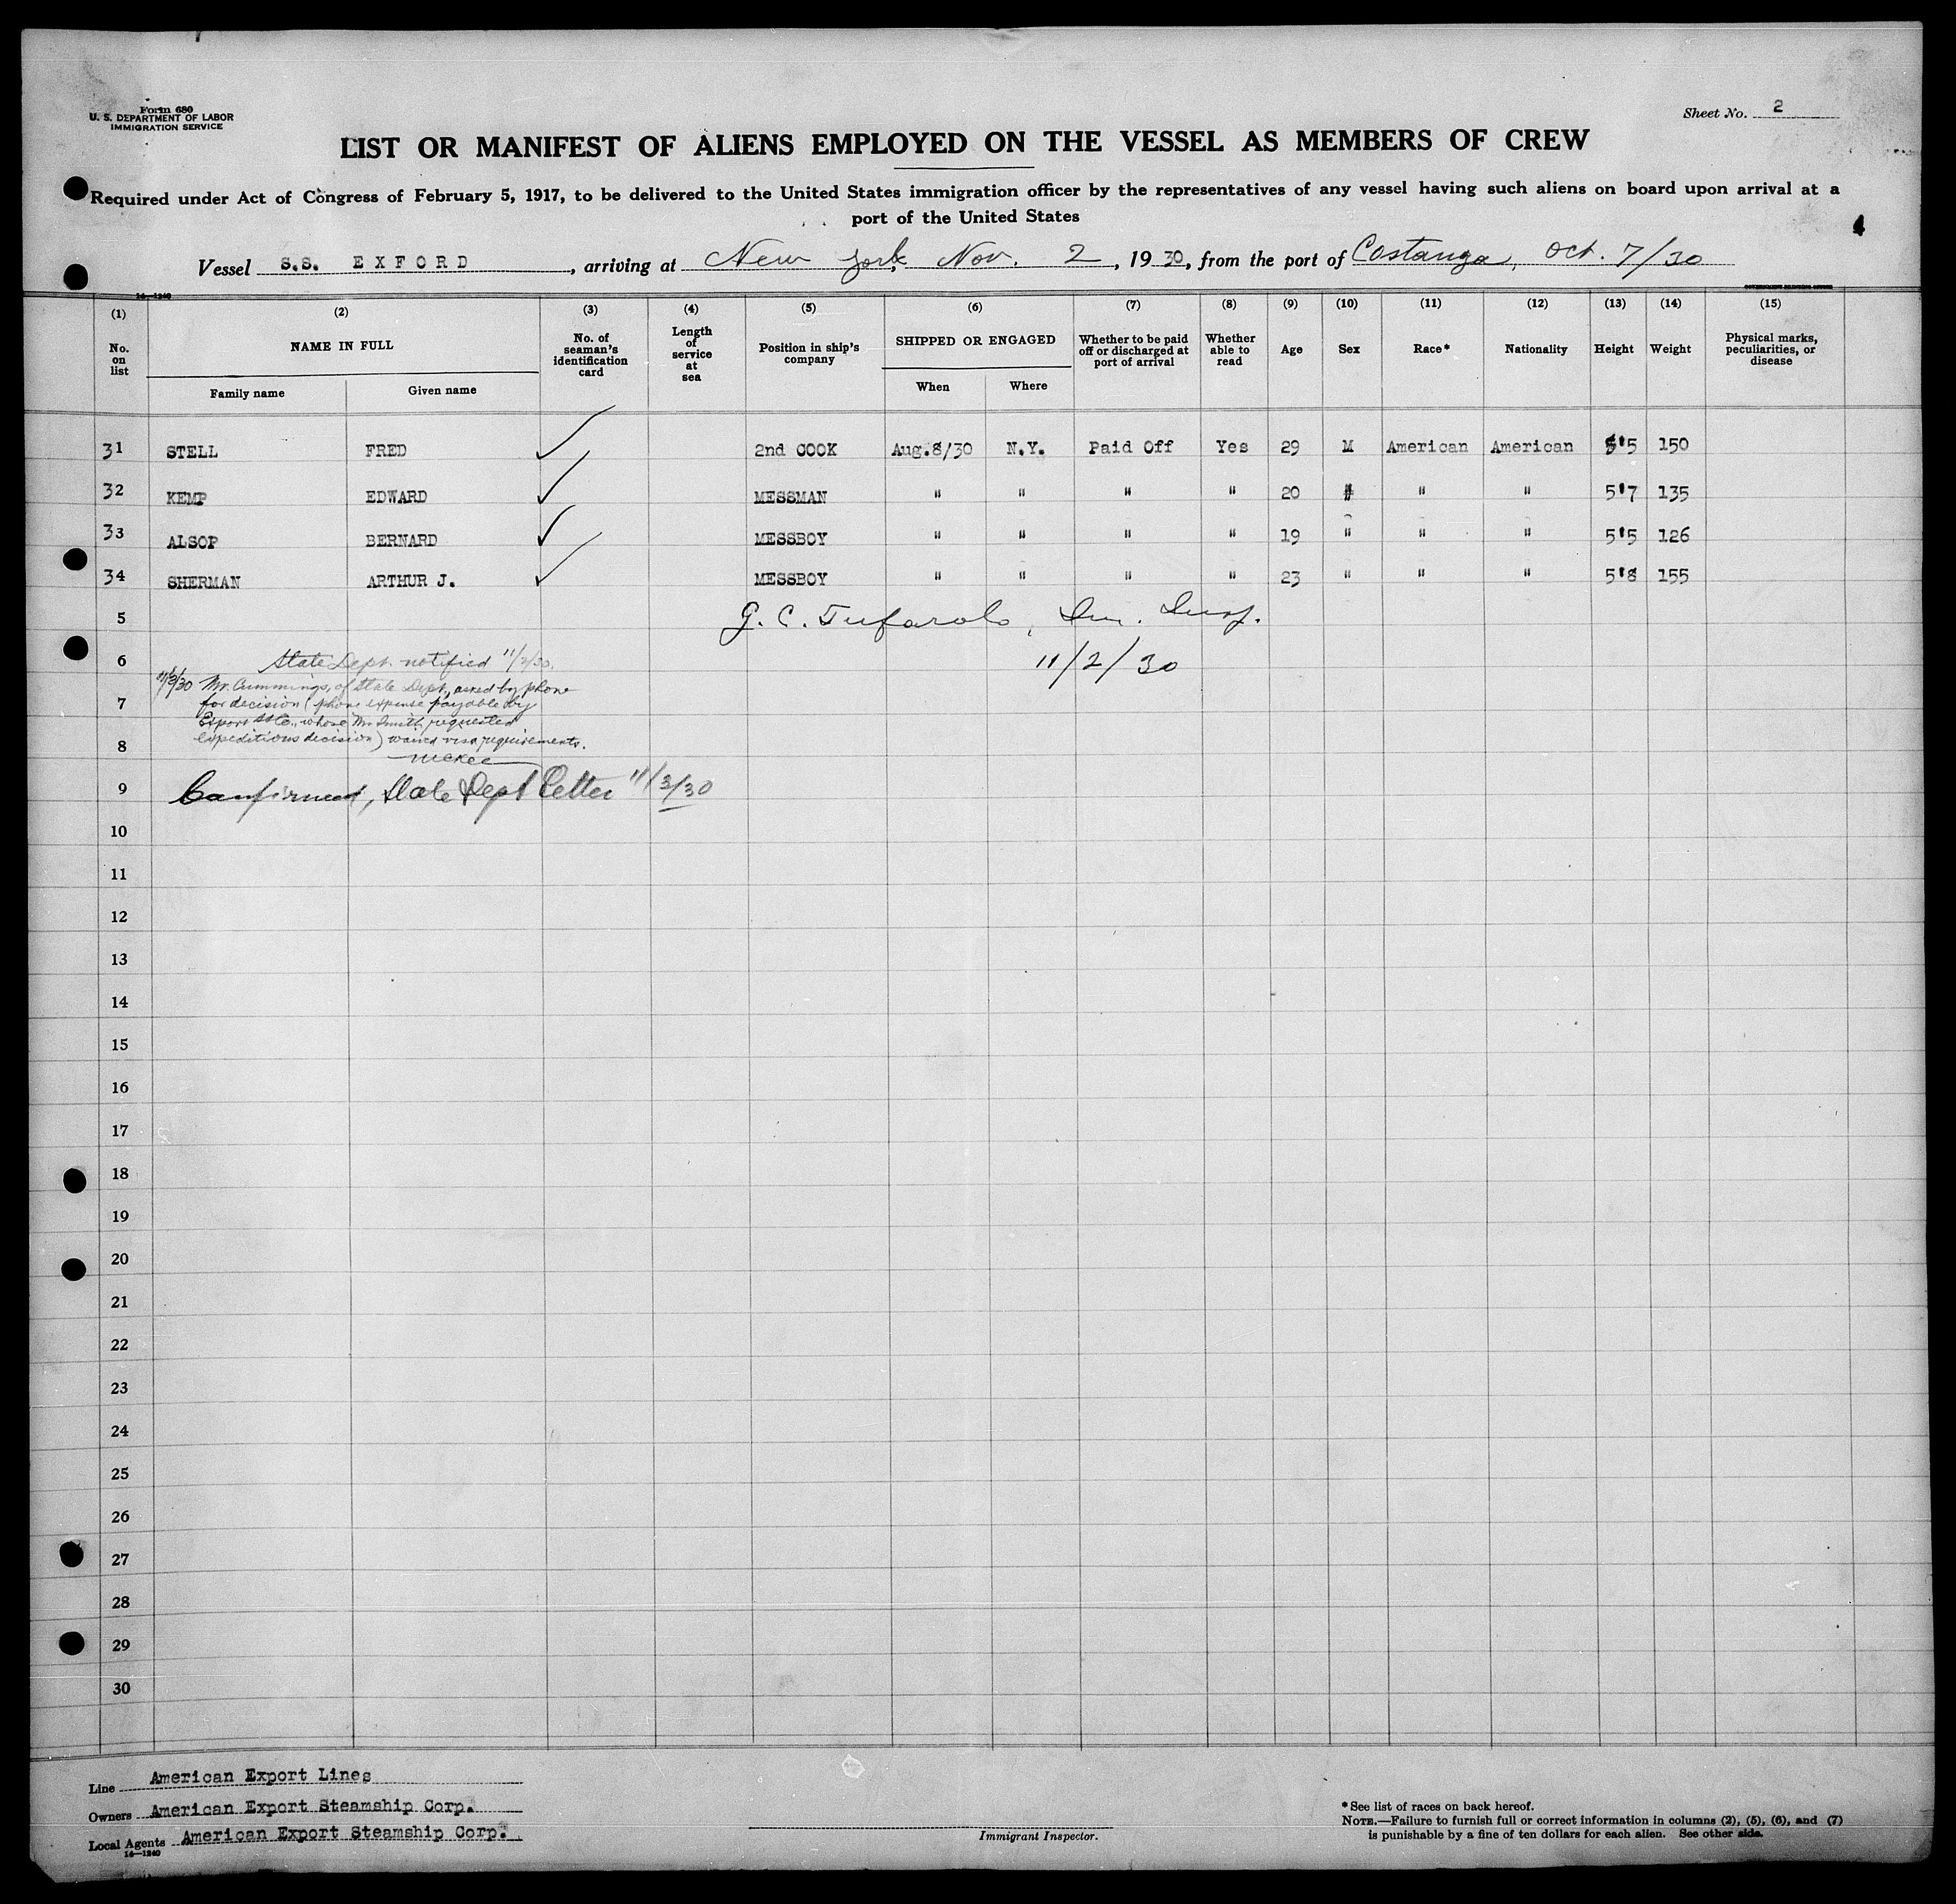 Form 680
U. S. DEPARTMENT OF LABOR
IMMIGRATION SERVICE
Sheet No. 2
LIST OR MANIFEST OF ALIENS EMPLOYED ON THE VESSEL AS MEMBERS OF CREW
Required under Act of Congress of February 5, 1917, to be delivered to the United States immigration officer by the representatives of any vessel having such aliens on board upon arrival at a
port of the United States
Vessel S.S. EXFORD, arriving at New York, Nov. 2, 1930, from the port of Costanza, Oct. 7/30
14—1240
(1) (2) (3) (4) (5) (6) (7) (8) (9) (10) (11) (12) (13) (14) (15)
No. on list
NAME IN FULL
Family name
Given name
No. of seaman's identification card
Length of service at sea
Position in ship's company
SHIPPED OR ENGAGED
When
Where
Whether to be paid off or discharged at port of arrival
Whether able to read
Age
Sex
Race*
Nationality
Height
Weight
Physical marks, peculiarities, or disease
31 STELL FRED 2nd COOK Aug.8/30 N.Y. Paid Off Yes 29 M American American 5'5 150
32 KEMP EDWARD MESSMAN " " " " 20 " " " 5'7 135
33 ALSOP BERNARD MESSBOY " " " " 19 " " " 5'5 126
34 SHERMAN ARTHUR J. MESSBOY " " " " 23 " " " 5'8 155
5 G. C. Tufarolo, Im. Insp.
6 State Dept. notified 11/3/30. 11/2/30
11/3/30 Mr. Cummings, of State Dept, asked by phone
7 for decision (phone expense payable by
Export SS Co., whose Mr. Smith requested
8 expeditious decision) waived visa requirements.
McKee
9 Confirmed, State Dept Letter 11/3/30
10
11
12
13
14
15
16
17
18
19
20
21
22
23
24
25
26
27
28
29
30
Line American Export Lines
Owners American Export Steamship Corp.
Local Agents American Export Steamship Corp.
14—1240
Immigrant Inspector.
*See list of races on back hereof.
NOTE.—Failure to furnish full or correct information in columns (2), (5), (6), and (7)
is punishable by a fine of ten dollars for each alien. See other side.